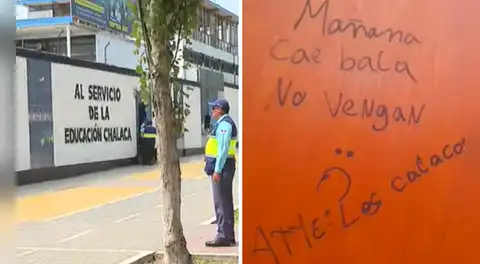 AL SERVICIO
DE LA
EDUCACIÓN CHALACA
Mañana
Cae bala
No vengan
Atte: Los calaco